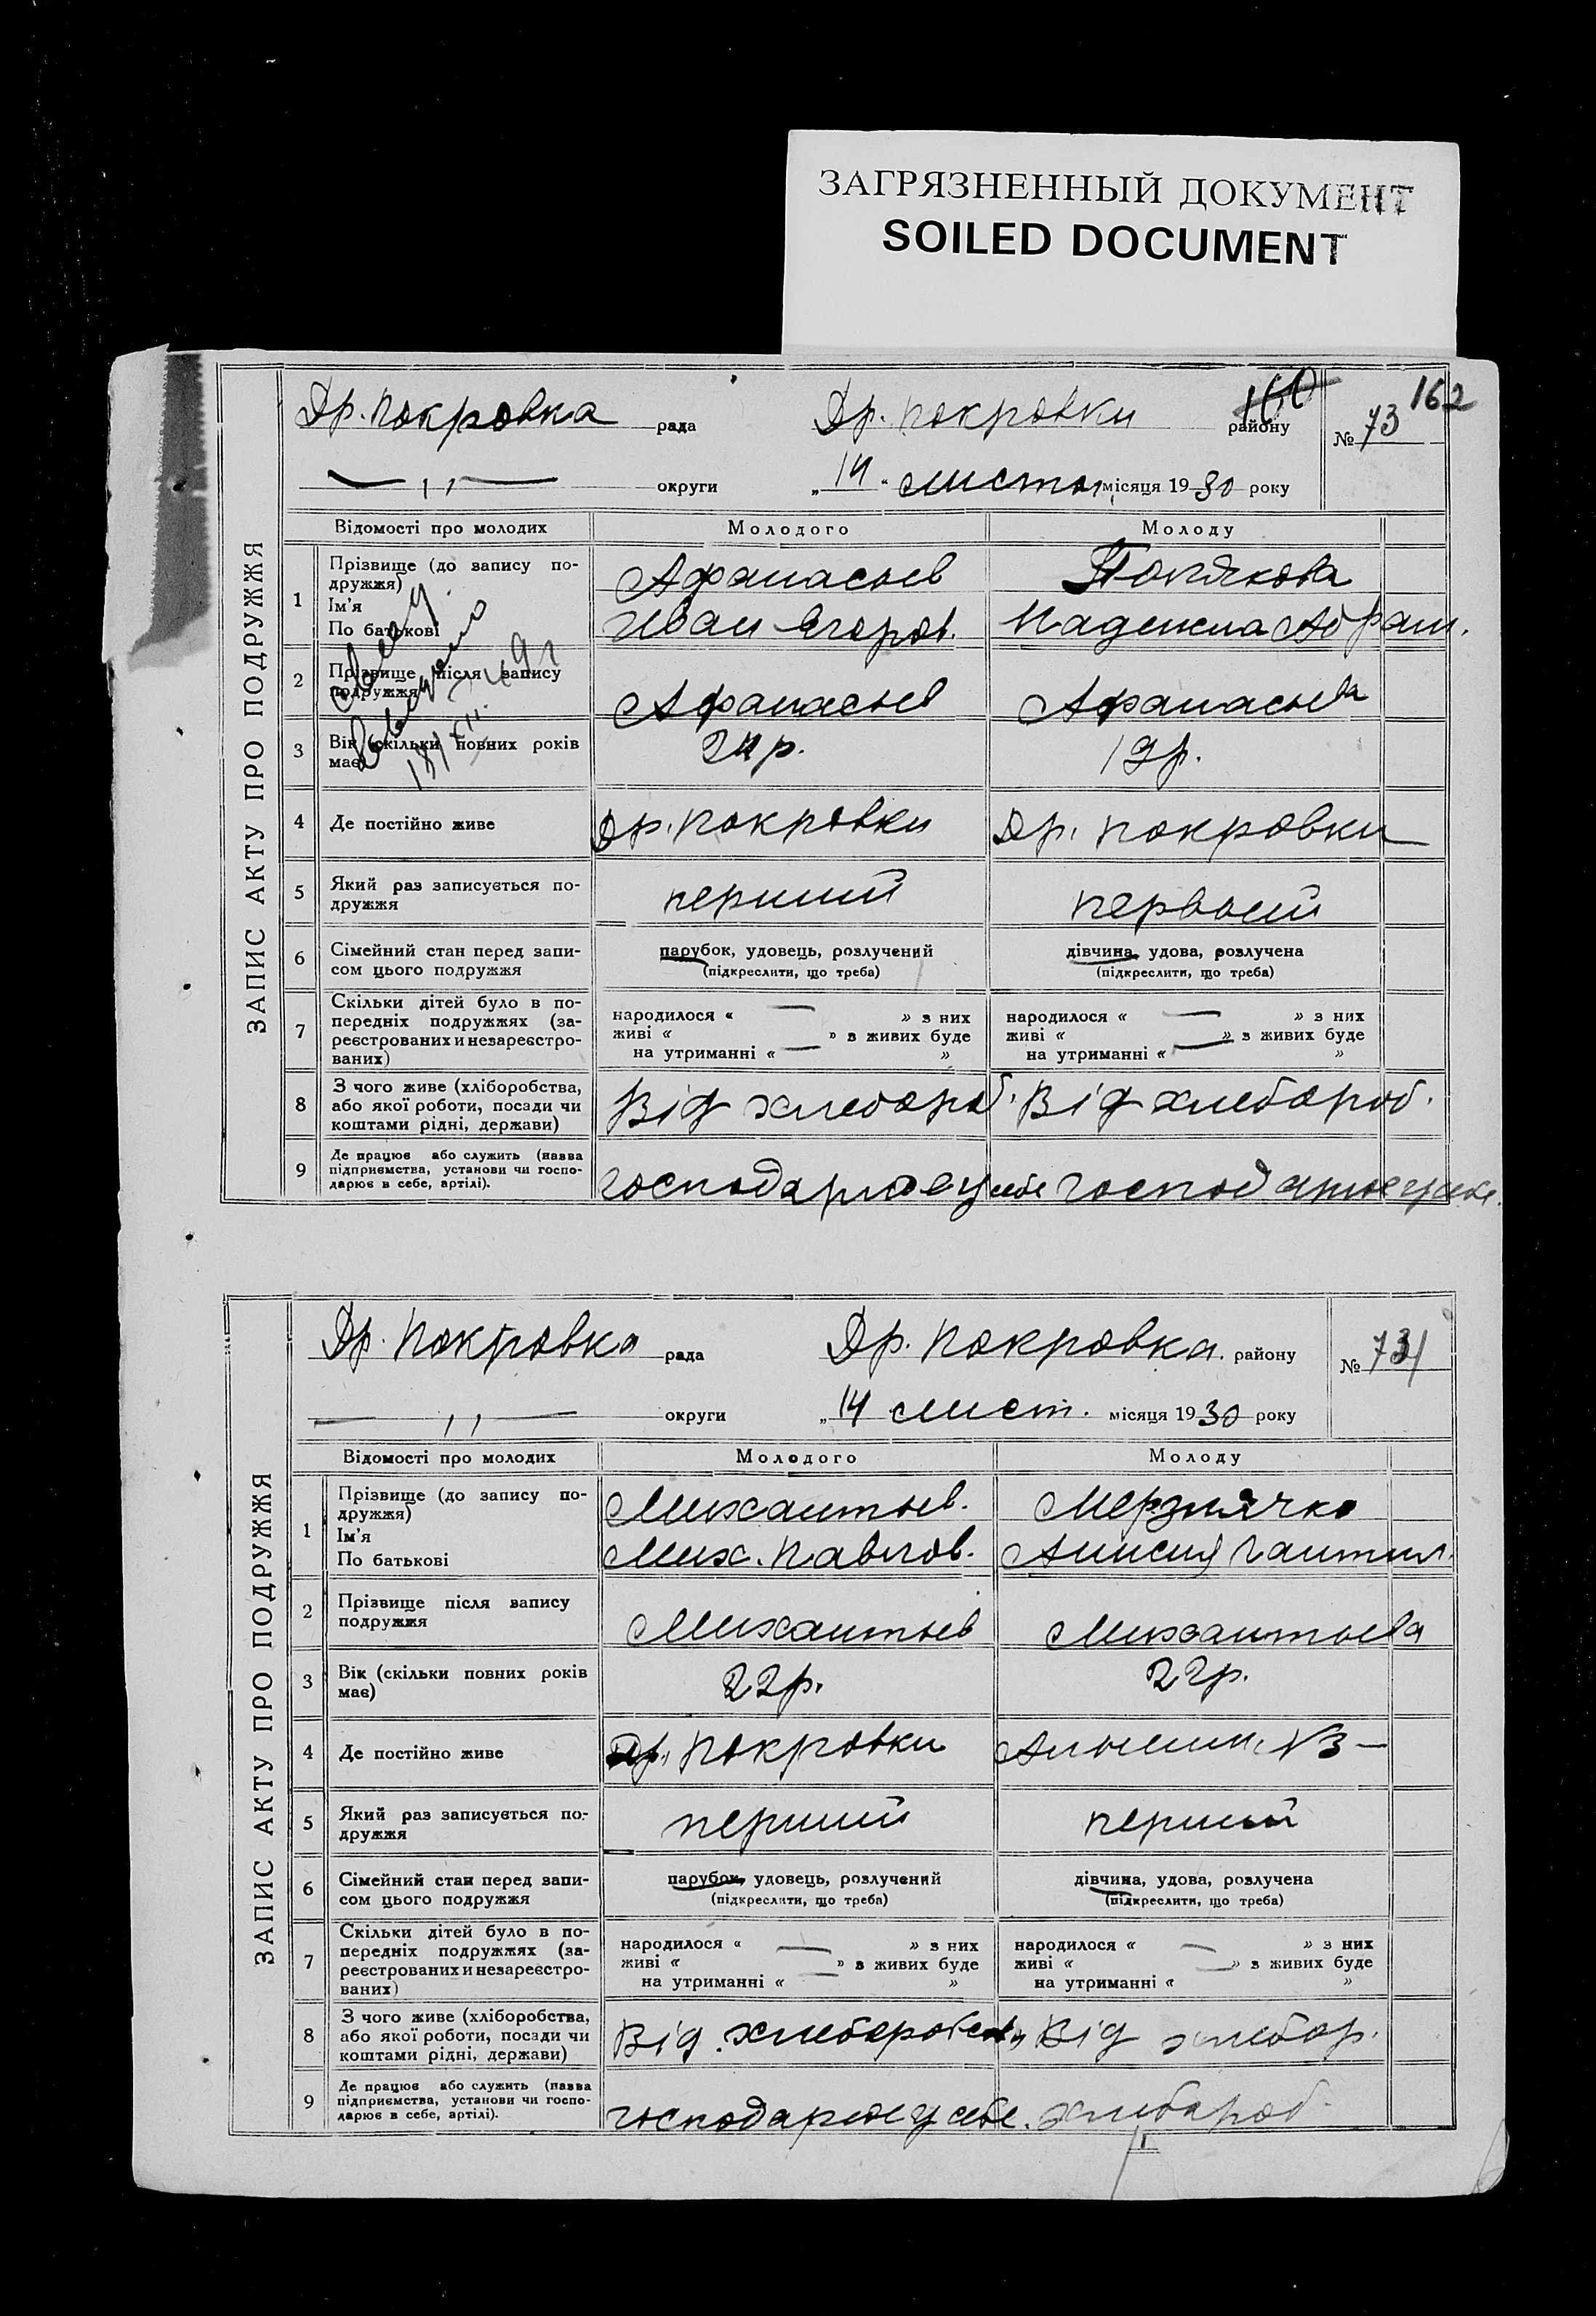 ЗАГРЯЗНЕННЫЙ ДОКУМЕНТ
SOILED DOCUMENT
ЗАПИС АКТУ ПРО ПОДРУЖЖЯ
160
162
Др. Покровка рада Др. Покровки району № 73
— ,, — округи „14“ листоп. місяця 1930 року
Відомості про молодих Молодого Молоду
1 Прізвище (до запису по-
дружжя)
Ім'я
По батькові
Афанасьев Полякова
Иван Егоров. Надежда Абрам.
2 Прізвище після запису
подружжя
Афанасьев Афанасьева
3 Вік (скільки повних років
має)
24 р. 19 р.
4 Де постійно живе Др. Покровки Др. Покровки
5 Який раз записується по-
дружжя
перший первый
6 Сімейний стан перед запи-
сом цього подружжя
парубок, удовець, розлучений дівчина, удова, розлучена
(підкреслити, що треба) (підкреслити, що треба)
7 Скільки дітей було в по-
передніх подружжях (за-
реєстрованих и незареєстро-
ваних)
народилося « — » з них народилося « — » з них
живі « » з живих буде живі « » з живих буде
на утриманні « — » на утриманні « — »
8 З чого живе (хліборобства,
або якої роботи, посади чи
коштами рідні, держави)
Від хлебороб. Від хлебороб.
9 Де працює або служить (назва
підприємства, установи чи госпо-
дарює в себе, артілі).
господарює у себе господарює у себе.
ЗАПИС АКТУ ПРО ПОДРУЖЖЯ
Др. Покровка рада Др. Покровка району № 731
— ,, — округи „14 лист. місяця 1930 року
Відомості про молодих Молодого Молоду
1 Прізвище (до запису по-
дружжя)
Ім'я
По батькові
Михайльев. Мерзлячко
Мих. Павлов. Анисия
2 Прізвище після запису
подружжя
Михайльев Михайльева
3 Вік (скільки повних років
має)
22 р. 22 р.
4 Де постійно живе Др. Покровки №3 —
5 Який раз записується по-
дружжя
перший перший
6 Сімейний стан перед запи-
сом цього подружжя
парубок, удовець, розлучений дівчина, удова, розлучена
(підкреслити, що треба) (підкреслити, що треба)
7 Скільки дітей було в по-
передніх подружжях (за-
реєстрованих и незареєстро-
ваних)
народилося « — » з них народилося « — » з них
живі « » з живих буде живі « » з живих буде
на утриманні « — » на утриманні « — »
8 З чого живе (хліборобства,
або якої роботи, посади чи
коштами рідні, держави)
Від Від хлебор.
9 Де працює або служить (назва
підприємства, установи чи госпо-
дарює в себе, артілі).
господарює у себе. хлебороб.